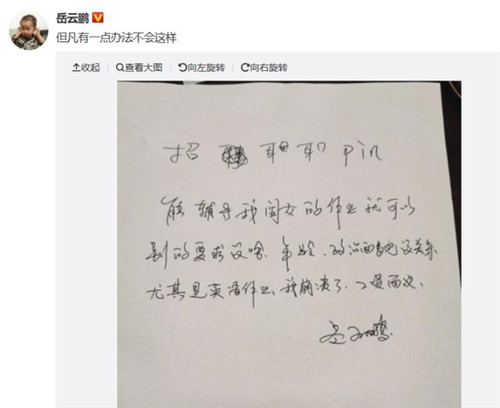 岳云鹏
但凡有一点办法不会这样
收起 查看大图 向左旋转 向右旋转
招 耳 职 Pin
能辅导我闺女的作业就可以
别的要求没啥．年龄、政治面貌都没关系
尤其是英语作业、我崩溃了．工资面议．
岳云鹏